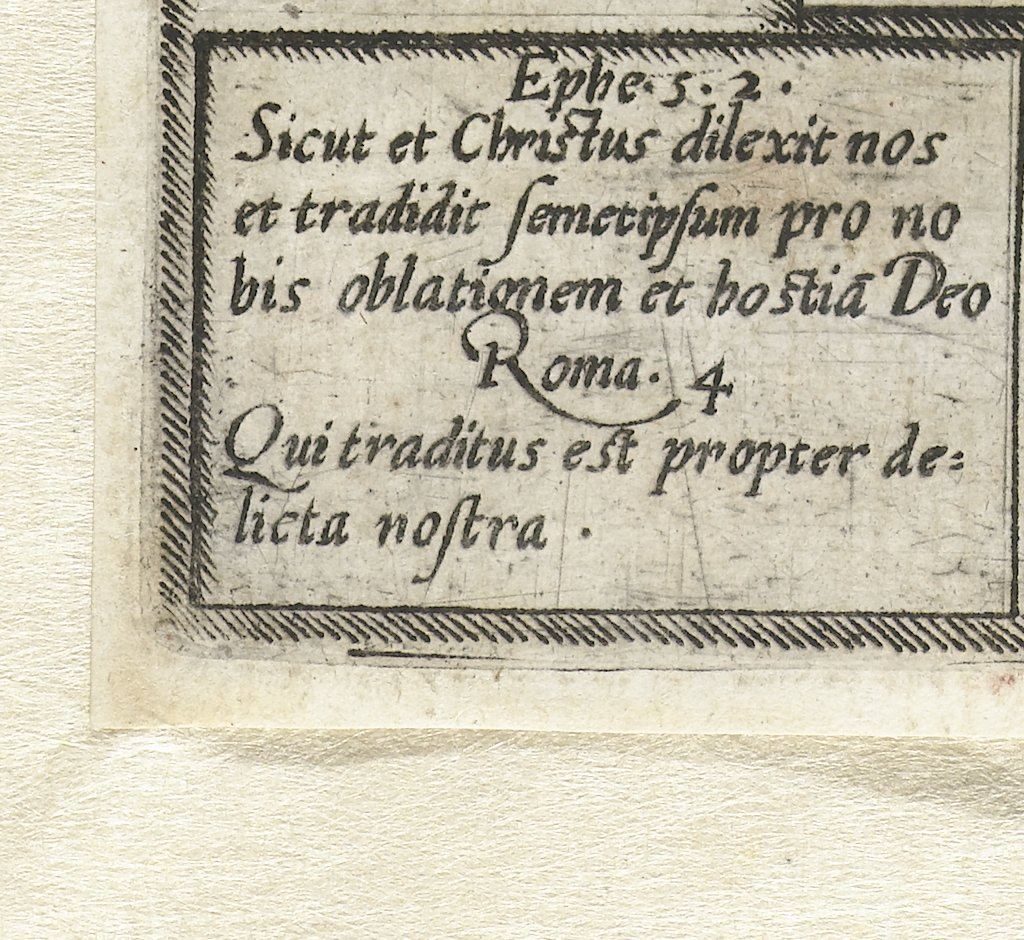 Ephe. 5. 2.
Sicut et Christus dilexit nos
et tradidit ſemetipſum pro no
bis oblationem et hostiã Deo
Roma. 4
Qui traditus est propter de=
licta noſtra.